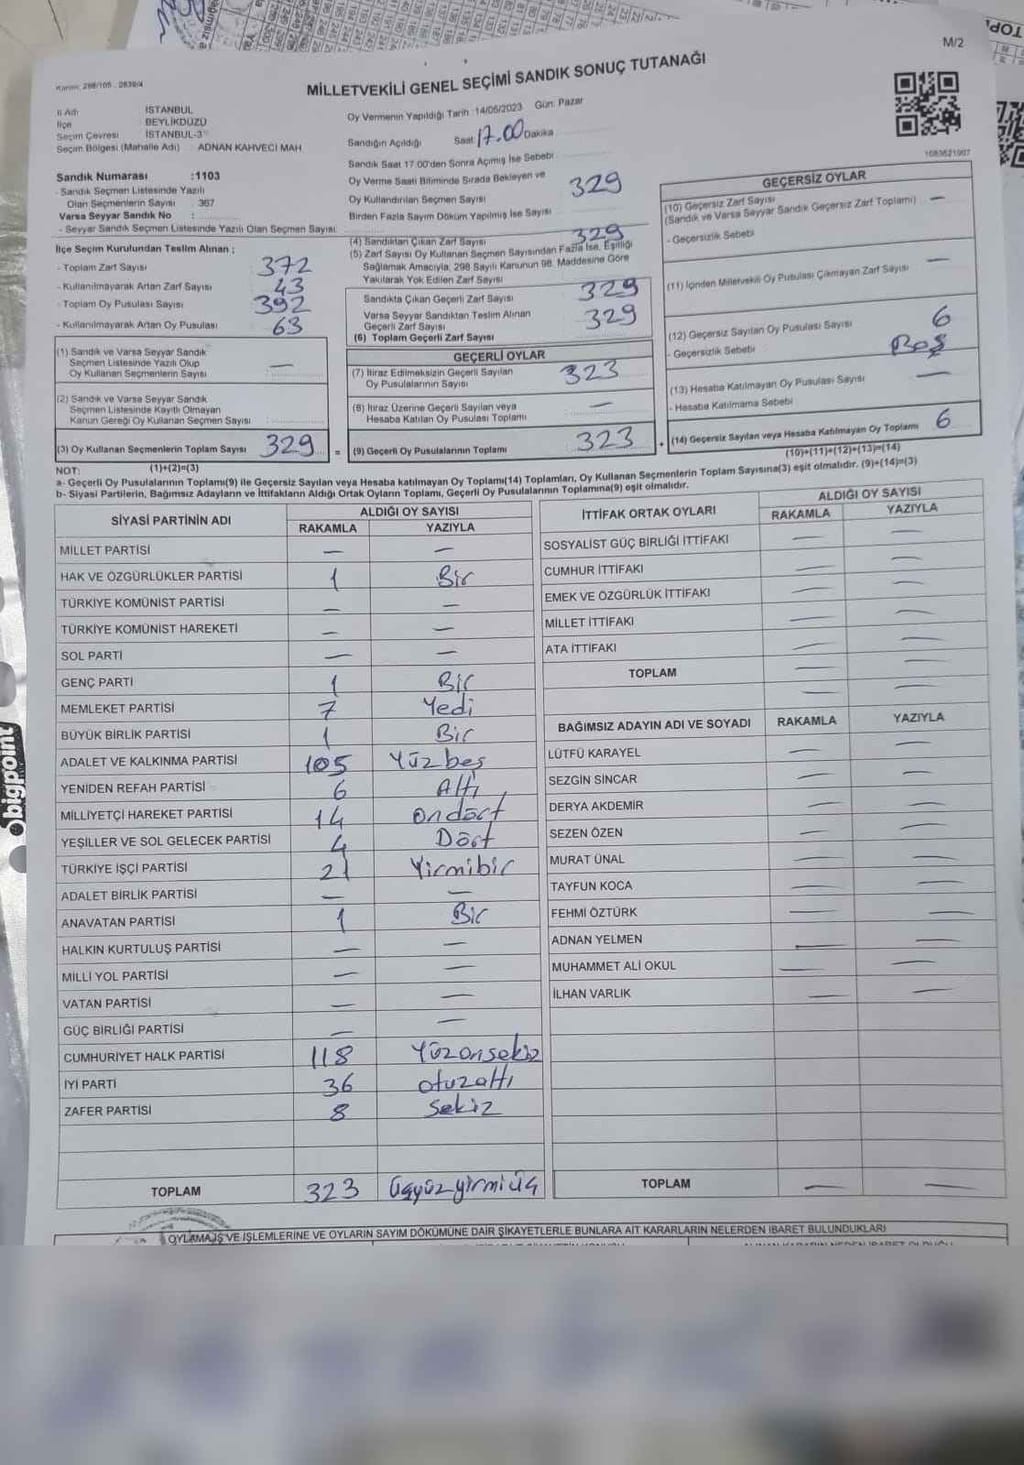 M/2
MİLLETVEKİLİ GENEL SEÇİMİ SANDIK SONUÇ TUTANAĞI
İl Adı İSTANBUL
İlçe BEYLİKDÜZÜ
Seçim Çevresi İSTANBUL-3
Seçim Bölgesi (Mahalle Adı) ADNAN KAHVECİ MAH.
Sandık Numarası :1103
- Sandık Seçmen Listesinde Yazılı
Olan Seçmenlerin Sayısı : 367
Varsa Seyyar Sandık No :
- Seyyar Sandık Seçmen Listesinde Yazılı Olan Seçmen Sayısı:
İlçe Seçim Kurulundan Teslim Alınan ;
- Toplam Zarf Sayısı 372
- Kullanılmayarak Artan Zarf Sayısı 43
- Toplam Oy Pusulası Sayısı 392
- Kullanılmayarak Artan Oy Pusulası 63
(1) Sandık ve Varsa Seyyar Sandık
Seçmen Listesinde Yazılı Olup
Oy Kullanan Seçmenlerin Sayısı —
(2) Sandık ve Varsa Seyyar Sandık
Seçmen Listesinde Kayıtlı Olmayan
Kanun Gereği Oy Kullanan Seçmen Sayısı
(3) Oy Kullanan Seçmenlerin Toplam Sayısı 329
(1)+(2)=(3)
Oy Vermenin Yapıldığı Tarih :14/05/2023 Gün: Pazar
Sandığın Açıldığı Saat: 17.00 Dakika
Sandık Saat 17.00'den Sonra Açımış İse Sebebi
Oy Verme Saati Bitiminde Sırada Bekleyen ve
Oy Kullandırılan Seçmen Sayısı 329
Birden Fazla Sayım Döküm Yapılmış İse Sayısı
(4) Sandıktan Çıkan Zarf Sayısı 329
(5) Zarf Sayısı Oy Kullanan Seçmen Sayısından Fazla İse, Eşitliği
Sağlamak Amacıyla, 298 Sayılı Kanunun 98. Maddesine Göre
Yakılarak Yok Edilen Zarf Sayısı
Sandıkta Çıkan Geçerli Zarf Sayısı 329
Varsa Seyyar Sandıktan Teslim Alınan
Geçerli Zarf Sayısı 329
(6) Toplam Geçerli Zarf Sayısı
GEÇERLİ OYLAR
(7) İtiraz Edilmeksizin Geçerli Sayılan
Oy Pusulalarının Sayısı 323
(8) İtiraz Üzerine Geçerli Sayılan veya
Hesaba Katılan Oy Pusulası Toplamı —
= (9) Geçerli Oy Pusulalarının Toplamı 323
1083621907
GEÇERSİZ OYLAR
(10) Geçersiz Zarf Sayısı —
(Sandık ve Varsa Seyyar Sandık Geçersiz Zarf Toplamı)
- Geçersizlik Sebebi
(11) İçinden Milletvekili Oy Pusulası Çıkmayan Zarf Sayısı —
(12) Geçersiz Sayılan Oy Pusulası Sayısı 6
- Geçersizlik Sebebi Boş
(13) Hesaba Katılmayan Oy Pusulası Sayısı —
- Hesaba Katılmama Sebebi
+ (14) Geçersiz Sayılan veya Hesaba Katılmayan Oy Toplamı 6
(10)+(11)+(12)+(13)=(14)
NOT:
a- Geçerli Oy Pusulalarının Toplamı(9) ile Geçersiz Sayılan veya Hesaba katılmayan Oy Toplamı(14) Toplamları, Oy Kullanan Seçmenlerin Toplam Sayısına(3) eşit olmalıdır. (9)+(14)=(3)
b- Siyasi Partilerin, Bağımsız Adayların ve İttifakların Aldığı Ortak Oyların Toplamı, Geçerli Oy Pusulalarının Toplamına(9) eşit olmalıdır.
SİYASİ PARTİNİN ADI ALDIĞI OY SAYISI
RAKAMLA YAZIYLA
MİLLET PARTİSİ — —
HAK VE ÖZGÜRLÜKLER PARTİSİ 1 Bir
TÜRKİYE KOMÜNİST PARTİSİ — —
TÜRKİYE KOMÜNİST HAREKETİ — —
SOL PARTİ — —
GENÇ PARTİ 1 Bir
MEMLEKET PARTİSİ 7 Yedi
BÜYÜK BİRLİK PARTİSİ 1 Bir
ADALET VE KALKINMA PARTİSİ 105 Yüzbeş
YENİDEN REFAH PARTİSİ 6 Altı
MİLLİYETÇİ HAREKET PARTİSİ 14 ondört
YEŞİLLER VE SOL GELECEK PARTİSİ 4 Dört
TÜRKİYE İŞÇİ PARTİSİ 21 Yirmibir
ADALET BİRLİK PARTİSİ — —
ANAVATAN PARTİSİ 1 Bir
HALKIN KURTULUŞ PARTİSİ — —
MİLLİ YOL PARTİSİ — —
VATAN PARTİSİ — —
GÜÇ BİRLİĞİ PARTİSİ — —
CUMHURİYET HALK PARTİSİ 118 Yüzonsekiz
İYİ PARTİ 36 otuzaltı
ZAFER PARTİSİ 8 Sekiz
TOPLAM 323 üçyüzyirmiüç
İTTİFAK ORTAK OYLARI ALDIĞI OY SAYISI
RAKAMLA YAZIYLA
SOSYALİST GÜÇ BİRLİĞİ İTTİFAKI — —
CUMHUR İTTİFAKI — —
EMEK VE ÖZGÜRLÜK İTTİFAKI — —
MİLLET İTTİFAKI — —
ATA İTTİFAKI — —
TOPLAM — —
BAĞIMSIZ ADAYIN ADI VE SOYADI RAKAMLA YAZIYLA
LÜTFÜ KARAYEL — —
SEZGİN SİNCAR — —
DERYA AKDEMİR — —
SEZEN ÖZEN — —
MURAT ÜNAL — —
TAYFUN KOCA — —
FEHMİ ÖZTÜRK — —
ADNAN YELMEN — —
MUHAMMET ALİ OKUL — —
İLHAN VARLIK — —
TOPLAM — —
OYLAMA İŞ VE İŞLEMLERİNE VE OYLARIN SAYIM DÖKÜMÜNE DAİR ŞİKAYETLERLE BUNLARA AİT KARARLARIN NELERDEN İBARET BULUNDUKLARI
bigpoint